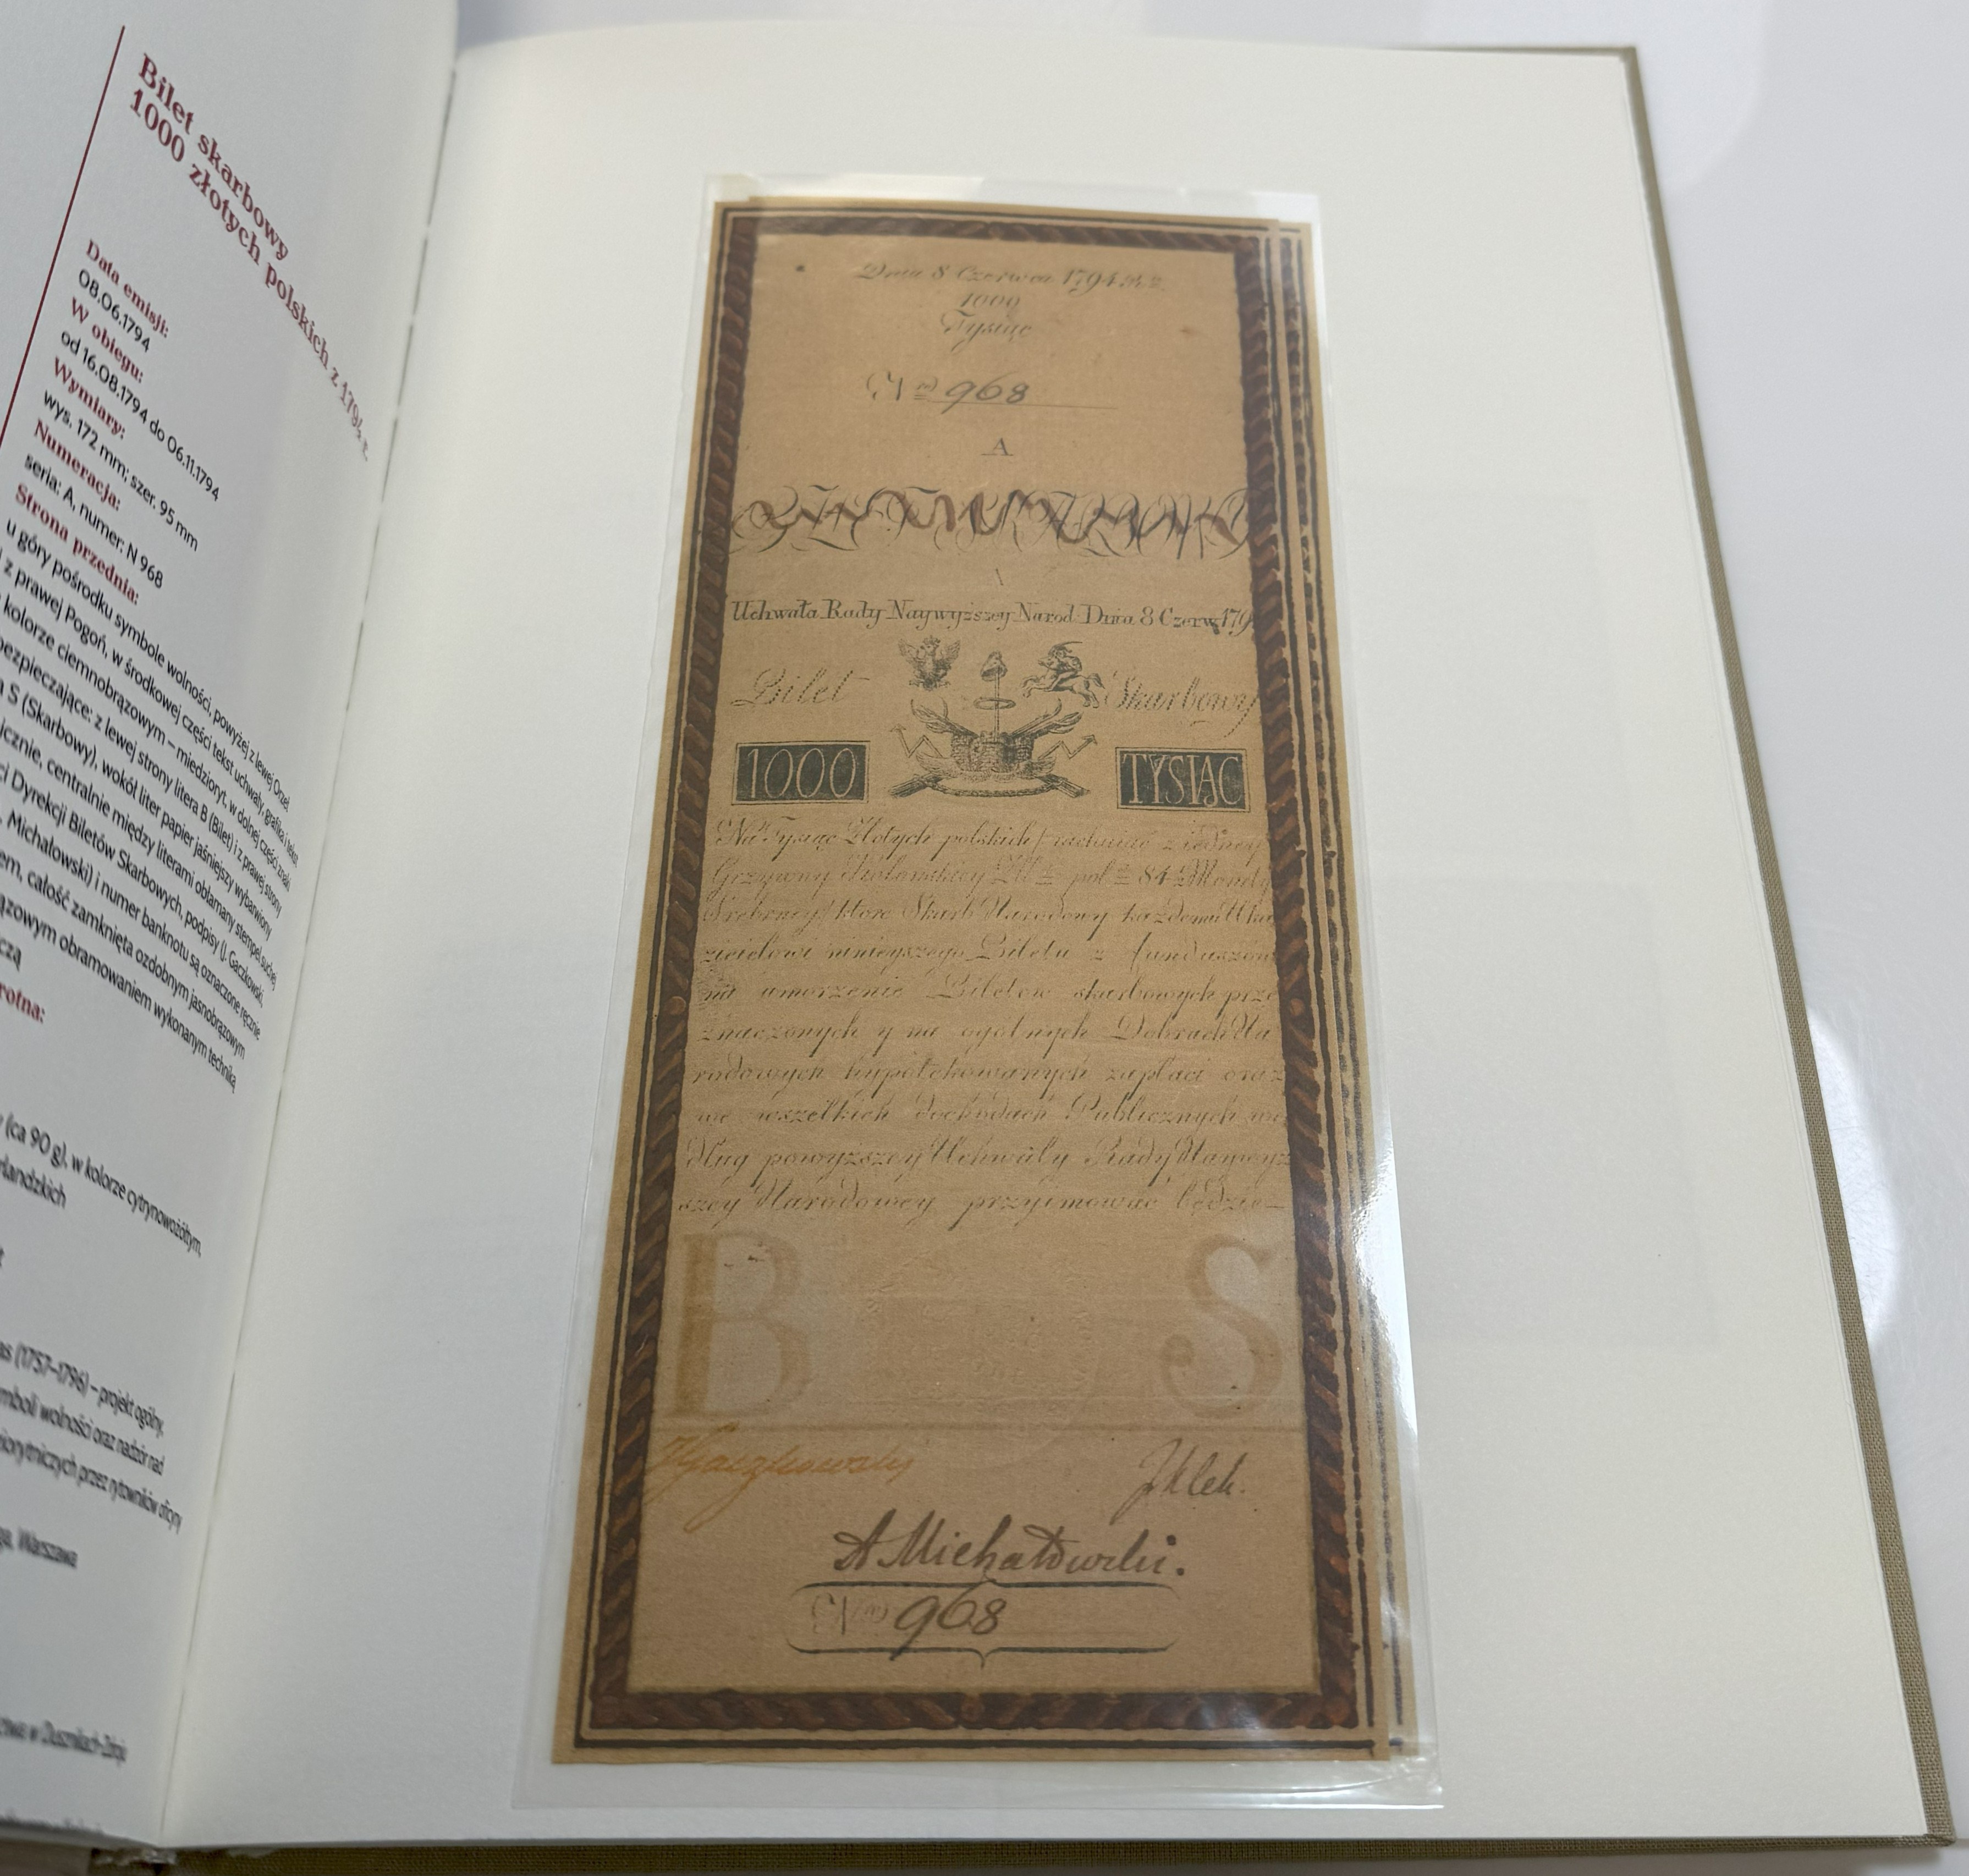 Bilet skarbowy
1000 złotych polskich z 1794 r.
Data emisji:
08.06.1794
W obiegu:
od 16.08.1794 do 06.11.1794
Wymiary:
wys. 172 mm; szer. 95 mm
Numeracja:
seria: A, numer: N 968
Strona przednia:
u góry pośrodku symbole wolności, powyżej z lewej Orzeł
z prawej Pogoń, w środkowej części tekst uchwały, grafika i tekst
kolorze ciemnobrązowym – miedzioryt, w dolnej części znaki
bezpieczające: z lewej strony litera B (Bilet) i z prawej strony
S (Skarbowy), wokół liter papier jaśniejszy wybarwiony
icznie, centralnie między literami obłamany stempel suchej
ci Dyrekcji Biletów Skarbowych, podpisy (J. Gaczkowski,
Michałowski) i numer banknotu są oznaczone ręcznie
em, całość zamknięta ozdobnym jasnobrązowym
ązowym obramowaniem wykonanym techniką
czą
rotna:
(ca 90 g), w kolorze cytrynowożółtym,
rlandzkich
as (1757–1796) – projekt ogólny,
mboli wolności oraz nadzór nad
ziorytniczych przez rytowników oficyny
ga, Warszawa
ctwa w Dusznikach-Zdroju
Dnia 8 Czerwca 1794
1000
Tysiąc
N 968
A
BILET SKARBOWY
Uchwała Rady Naywyższey Narod Dnia 8 Czerw 179
Bilet Skarbowy
1000 TYSIĄC
Na Tysiąc Złotych polskich / rachuiąc z iedney
Grzywny Kolonskiey Zł pol 84 Monety
Srebrney / ktore Skarb Narodowy każdemu Uka
zicielowi ninieyszego Biletu z funduszow
na umorzenie Biletow skarbowych prze
znaczonych y na ogolnych Dobrach Na
rodowych hypotekowanych zapłaci oraz
we wszelkich dochodach Publicznych we
dług powyższey Uchwały Rady Naywyż
szey Narodowey przyimować będzie
B S
JGaczkowski JKlek.
A Michałowski.
N 968